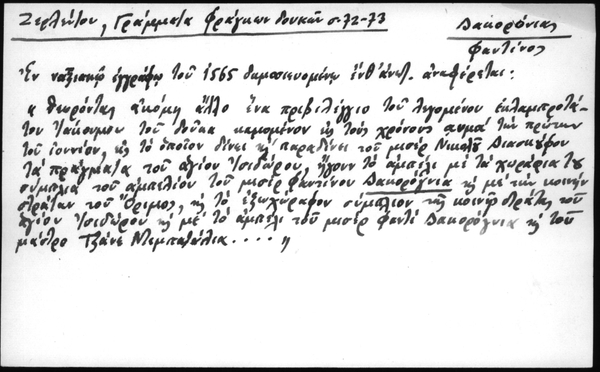 Ζερλέντου, Γράμματα Φράγκων δουκῶν σ. 72-73
Δακορόνιας
Φαντίνος
Ἐν ναξιακῷ ἐγγράφῳ τοῦ 1565 δημοσιευομένῳ ἔνθ' ἀνωτ. ἀναφέρεται:
"Θεωρόντας ἀκόμη ἄλλο ἕνα πριβελέγγιο τοῦ λεγομένου ἐκλαμπροτά-
του Ἰάκουμου τοῦ δούκα καμομένον εἰς τοὺς χρόνους αφμα τὴν πρώτην
τοῦ ἰουνίου, εἰς τὸ ὁποῖον δίνει κὶ παραδίνει τοῦ μισὲρ Νικολὸ Διασκούφο
τὰ πράγματα τοῦ ἁγίου Ἰσιδώρου, ἤγουν τὸ ἀμπέλι μὲ τὰ χωράφια του
σύμπλια τοῦ ἀμπελίου τοῦ μισὲρ Φαντίνου Δακορόγνια κὶ μὲ τὴν κοινὴν
στράταν τοῦ Ὄριμος, κὶ τὸ ἐξωχώραφον σύμπλιον τῆς κοινῆς στράτας τοῦ
ἁγίου Ἰσιδώρου κὶ μὲ τὸ ἀμπέλι τοῦ μισὲρ Φαντὶ Δακορόγνια κὶ τοῦ
μάστρο Τζάνε ....."